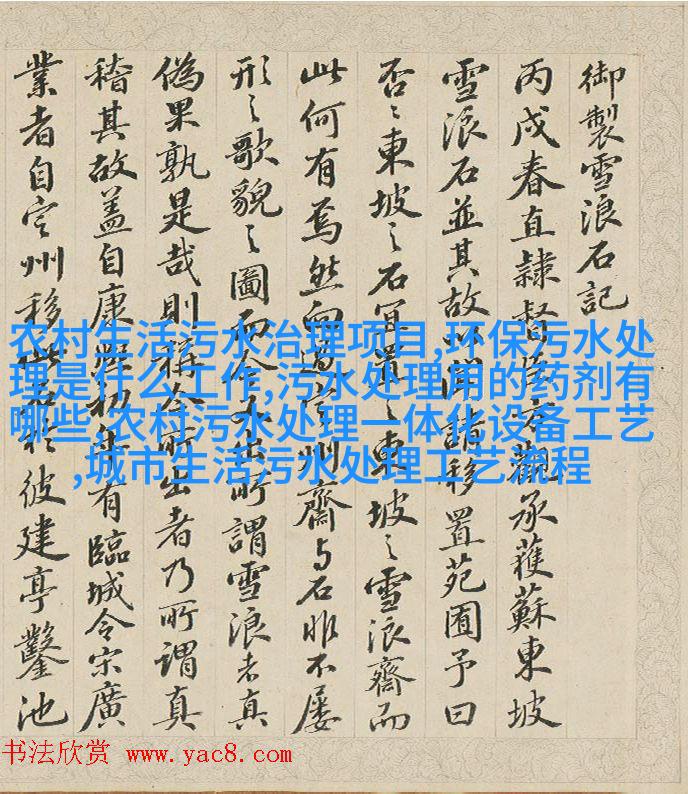 御製雪浪石記
丙戌春直隸督臣方觀承獲蘇東坡
雪浪石並其故以聞請移置苑囿予曰
否〻東坡之石宜置之東坡之雪浪齋而
此何有焉然向過定州齋与石非不屡
形之歌貌之圖而今又出所謂雪浪者真
偽果孰是哉則稱今所出者乃所謂真
稽其故盖自康熙初年有臨城令宋廣
業者自定州移此石於彼建亭鑿池
农村生活污水治理项目,环保污水处
理是什么工作,污水处理用的药剂有
哪些,农村污水处理一体化设备工艺
,城市生活污水处理工艺流程
书法欣赏 www.yac8.com